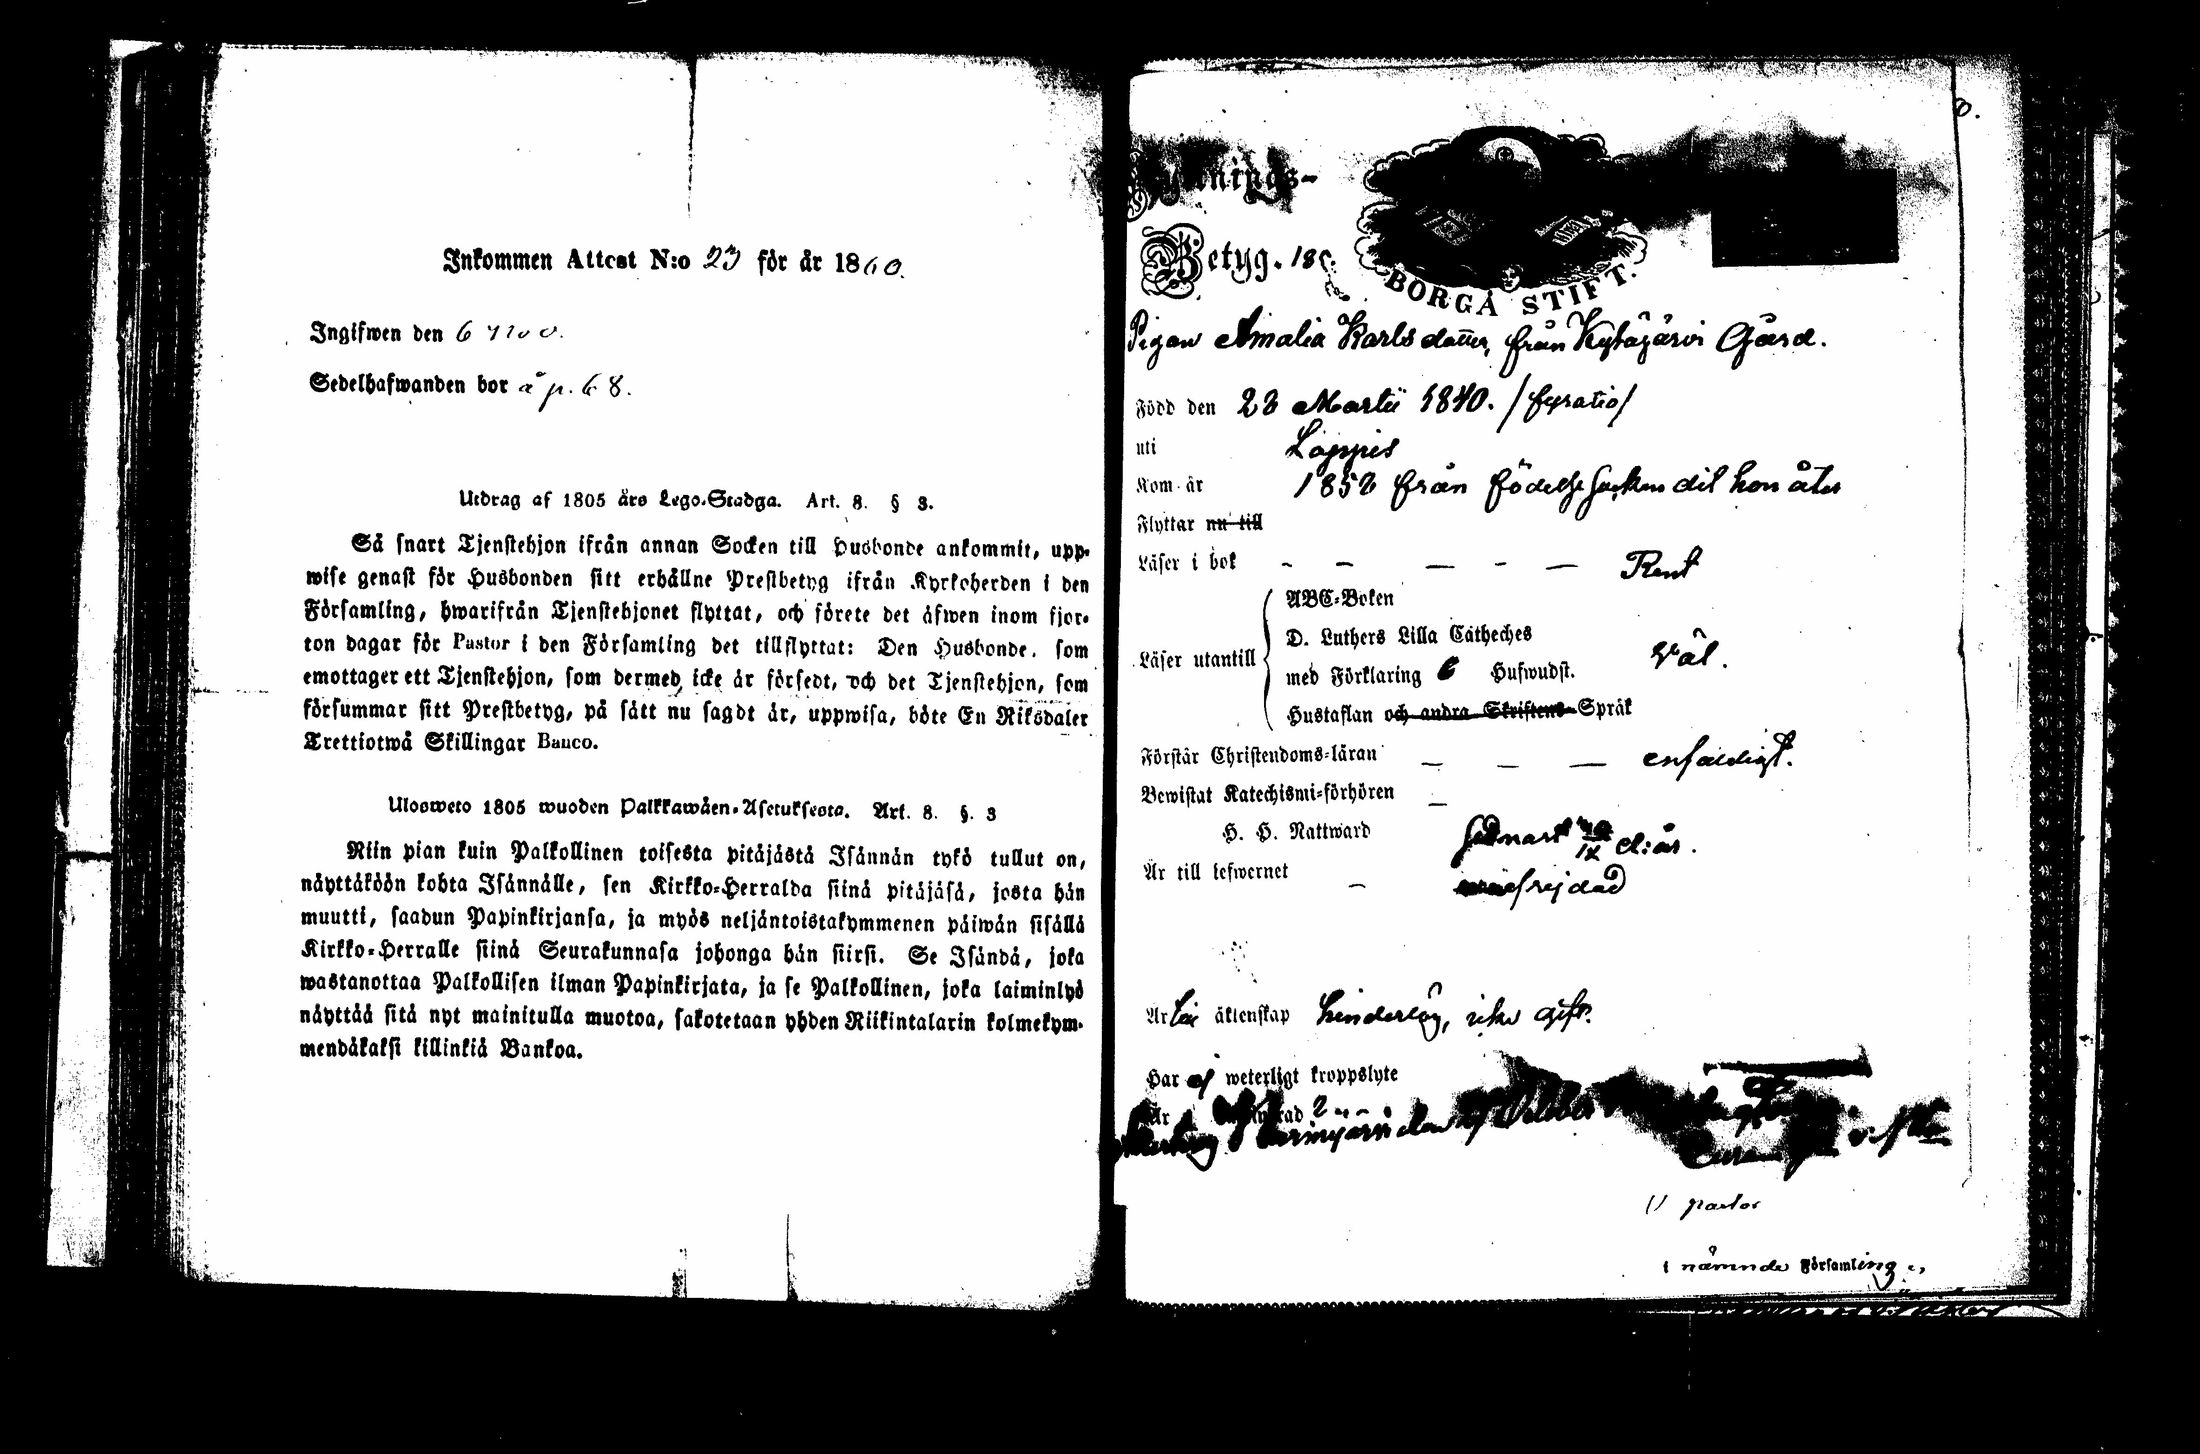 Inkommen Attest N:o 23 för år 1860.
Ingifwen den 6 Nov.
Sedelhafwanden bor å p. 68.
Utdrag af 1805 års Lego-Stadga. Art. 8. § 3.
Så snart Tjenstehjon ifrån annan Socken till Husbonde ankommit, upp-
wise genast för Husbonden sitt erhållne Prestbetyg ifrån Kyrkoherden i den
Församling, hwarifrån Tjenstehjonet flyttat, och förete det äfwen inom fjor-
ton dagar för Pastor i den Församling det tillflyttat: Den Husbonde, som
emottager ett Tjenstehjon, som dermed icke är försedt, och det Tjenstehjon, som
försummar sitt Prestbetyg, på sätt nu sagdt är, uppwisa, böte En Riksdaler
Trettiotwå Skillingar Banco.
Ulosweto 1805 wuoden Palkkawäen-Asetuksesta. Art. 8. §. 3
Niin pian kuin Palkollinen toisesta pitäjästä Isännän tykö tullut on,
näyttäköön kohta Isännälle, sen Kirkko-Herralda siinä pitäjäsä, josta hän
muutti, saadun Papinkirjansa, ja myös neljäntoistakymmenen päiwän sisällä
Kirkko-Herralle siinä Seurakunnasa johonga hän siirsi. Se Isändä, joka
wastanottaa Palkollisen ilman Papinkirjata, ja se Palkollinen, joka laiminlyö
näyttää sitä nyt mainitulla muotoa, sakotetaan yhden Riikintalarin kolmekym-
mendäkaksi killinkiä Bankoa.
Betyg. 18
BORGÅ STIFT.
Pigan Amalia Karlsdatter, från Kytäjärvi Gård.
Född den 23 Martii 1840. /fyratio/
uti Loppis
Kom år 1858 från födelse Socken dit hon åter
Flyttar nu till
Läser i bok — — — — — Rent
ABC-Boken
D. Luthers Lilla Catheches
Läser utantill med Förklaring 6 Hufwudst. Väl.
Hustaflan och andra Skriftens-Språk
Förstår Christendoms-läran — — — enfaldigt.
Bewistat Katechismi-förhören —
H. H. Nattward d: år.
Är till lefwernet — frejdad
Är till äktenskap hinderlös, icke gift.
Har ej weterligt kroppslyte
Är
pastor
i nämnde Församling